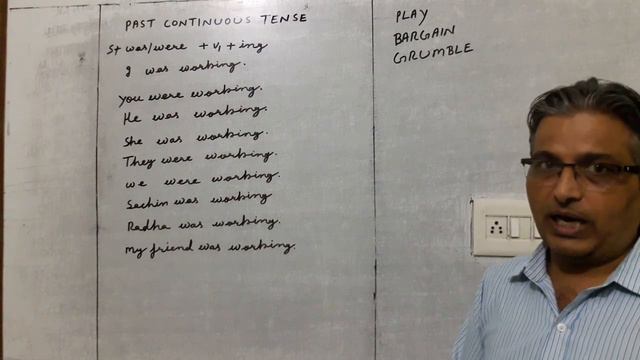 PAST CONTINUOUS TENSE
S+ was/were + V1 + ing
I was working.
You were working.
He was working.
She was working.
They were working.
we were working.
Sachin was working
Radha was working.
my friend was working.
PLAY
BARGAIN
GRUMBLE